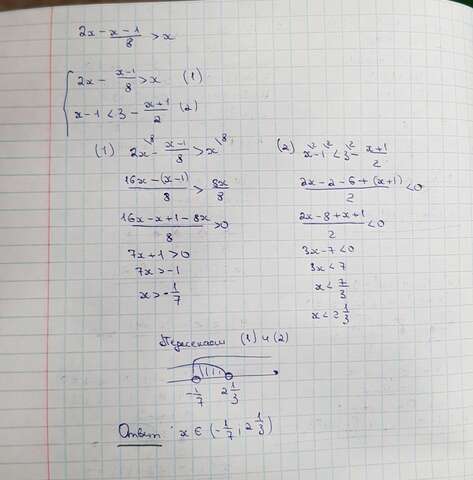 2x - x - 1 / 8 > x
{ 2x - (x-1)/8 > x (1)
x - 1 < 3 - (x+1)/2 (2)
(1) 2x\8 - (x-1)/8 > x\8
(16x - (x-1))/8 > 8x/8
(16x - x + 1 - 8x)/8 > 0
7x + 1 > 0
7x > -1
x > - 1/7
(2) x\2 - 1\2 < 3\2 - (x+1)/2
(2x - 2 - 6 + (x+1))/2 < 0
(2x - 8 + x + 1)/2 < 0
3x - 7 < 0
3x < 7
x < 7/3
x < 2 1/3
Пересекаем (1) и (2)
- 1/7 2 1/3
Ответ: x ∈ (- 1/7, 2 1/3)